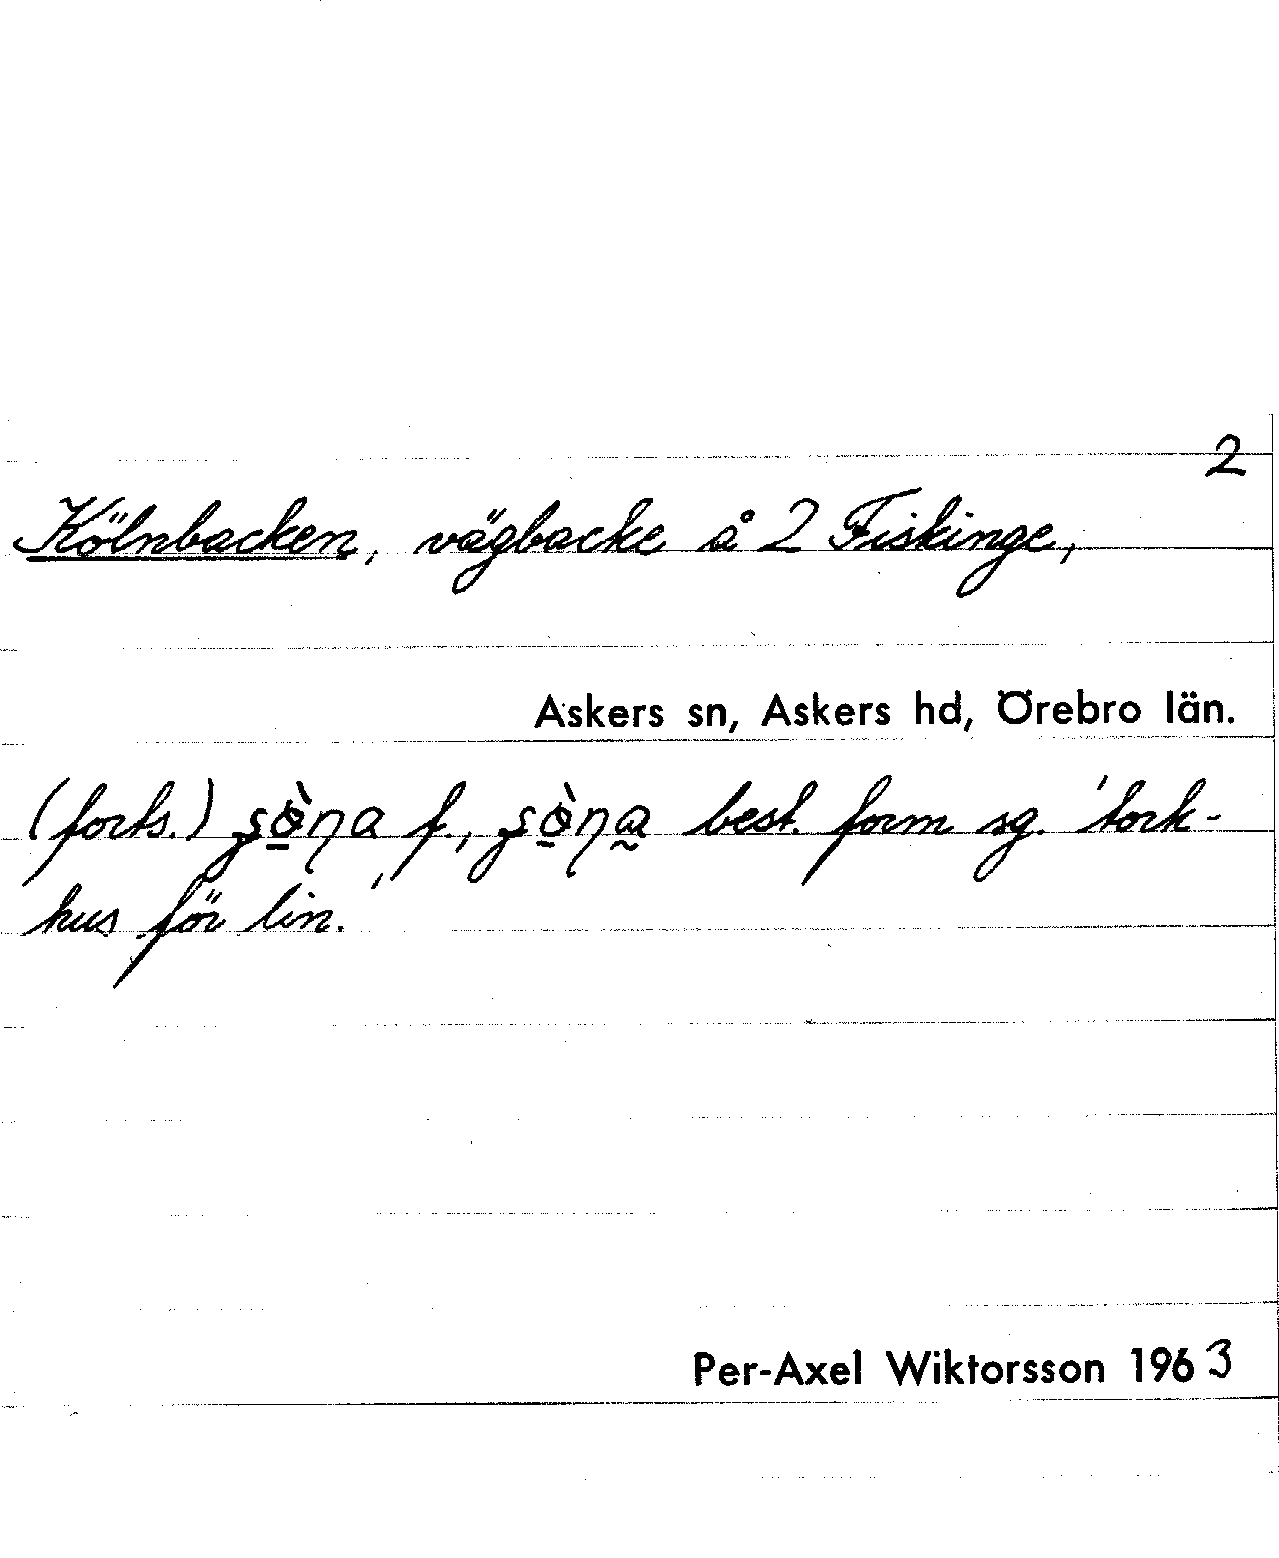 2
Kölnbacken, vägbacke å 2 Fiskinge,
Askers sn, Askers hd, Örebro län.
(forts.) f., best. form sg. 'tork-
hus för lin.'
Per-Axel Wiktorsson 1963